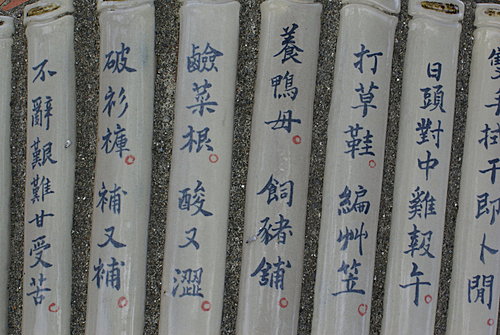 干即卜閒
日頭對中雞報午
打草鞋 編艸笠
養鴨母 飼豬舖
鹼菜根 酸又澀
破衫褲 補又補
不辭艱難甘受苦